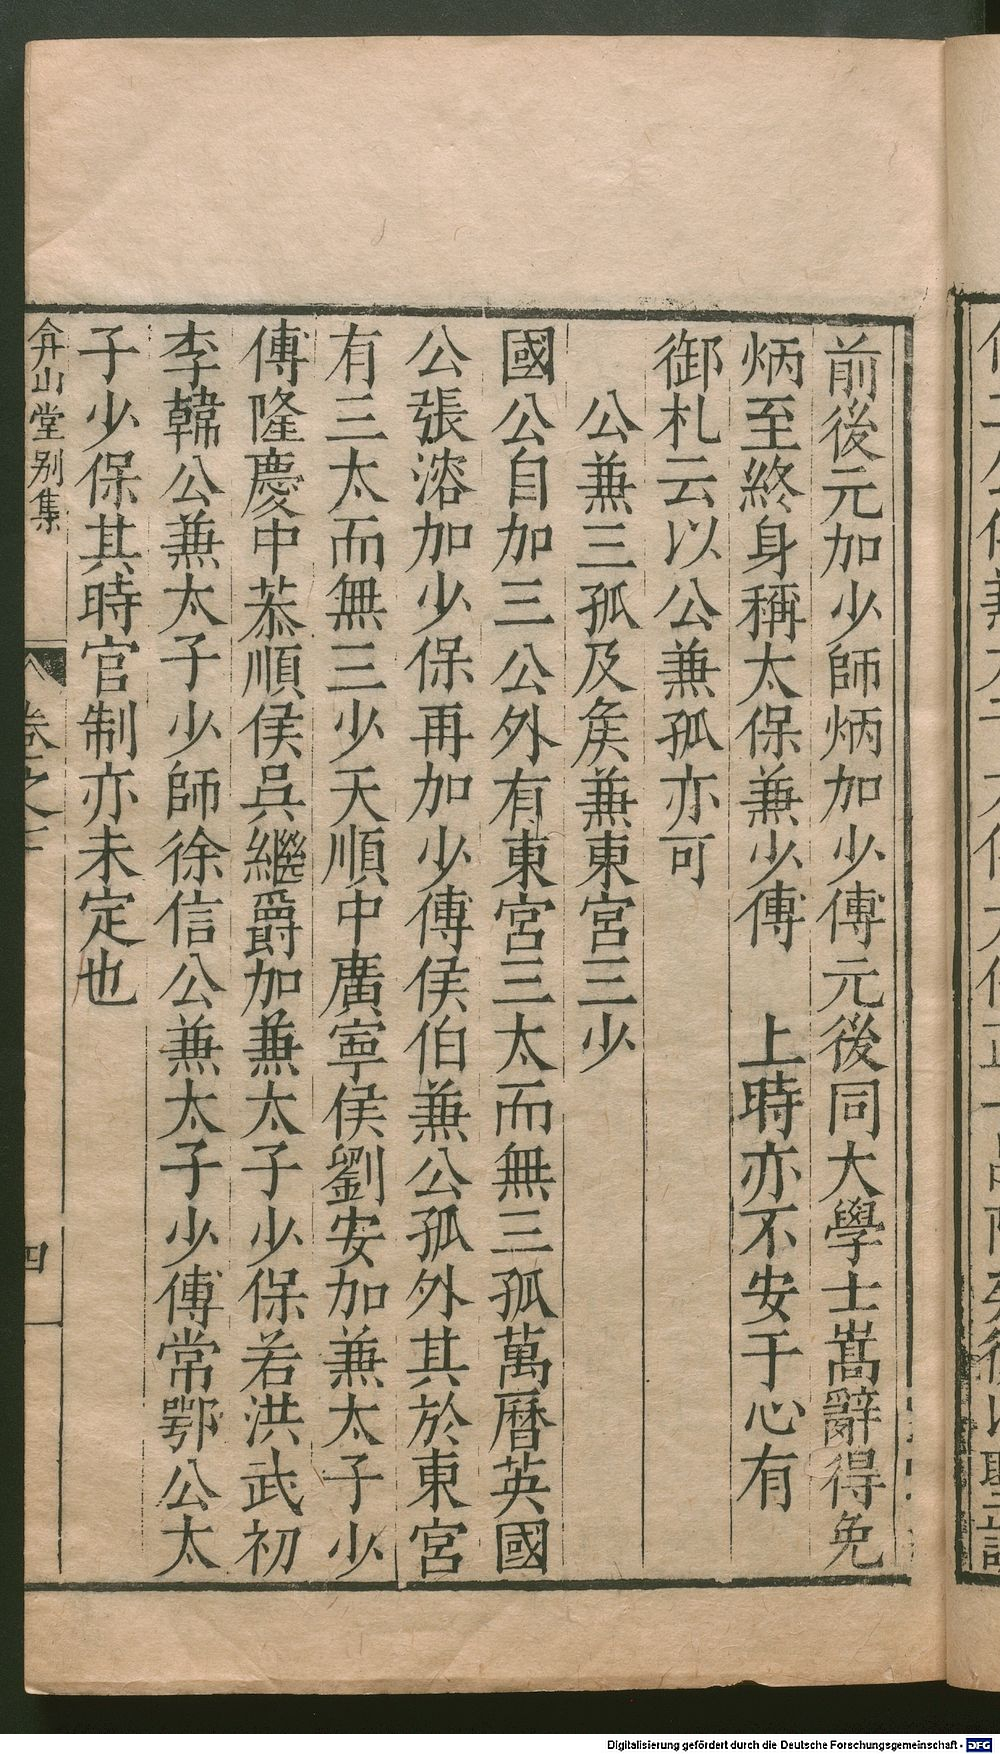 前後元加少師炳加少傅元後同大學士嵩辭得免
炳至終身稱太保兼少傅　上時亦不安于心有
御札云以公兼孤亦可
公兼三孤及矦兼東宮三少
國公自加三公外有東宮三太而無三孤萬曆英國
公張溶加少保再加少傅侯伯兼公孤外其於東宮
有三太而無三少天順中廣寧侯劉安加兼太子少
傅隆慶中恭順侯吳繼爵加兼太子少保若洪武初
李韓公兼太子少師徐信公兼太子少傅常鄂公太
子少保其時官制亦未定也
弇山堂别集
卷之
四
Digitalisierung gefördert durch die Deutsche Forschungsgemeinschaft - DFG